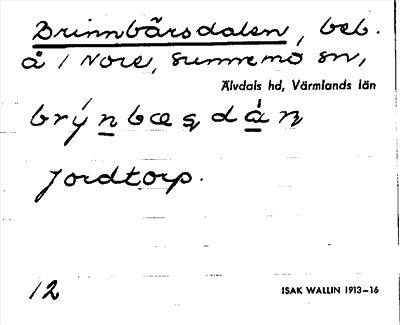 Brinnbärsdalen, beb.
å 1 Nore, Sunnemo sn,
Älvdals hd, Värmlands län
brýn bæs dán
Jordtorp.
12 ISAK WALLIN 1913–16